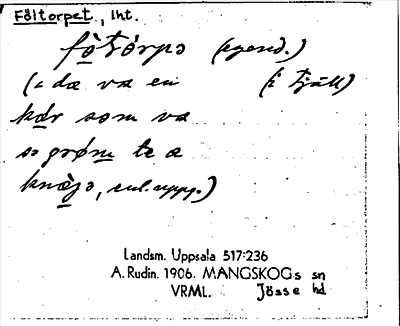 Fåltorpet, lht.
fò̱tórpə (egend.)
(i dæ va en (i tjäll)
kár som va
so grøm te æ
knæ̀gə, enl. uppg.)
Landsm. Uppsala 517:236
A. Rudin. 1906. MANGSKOGs sn
VRML. Jösse hd